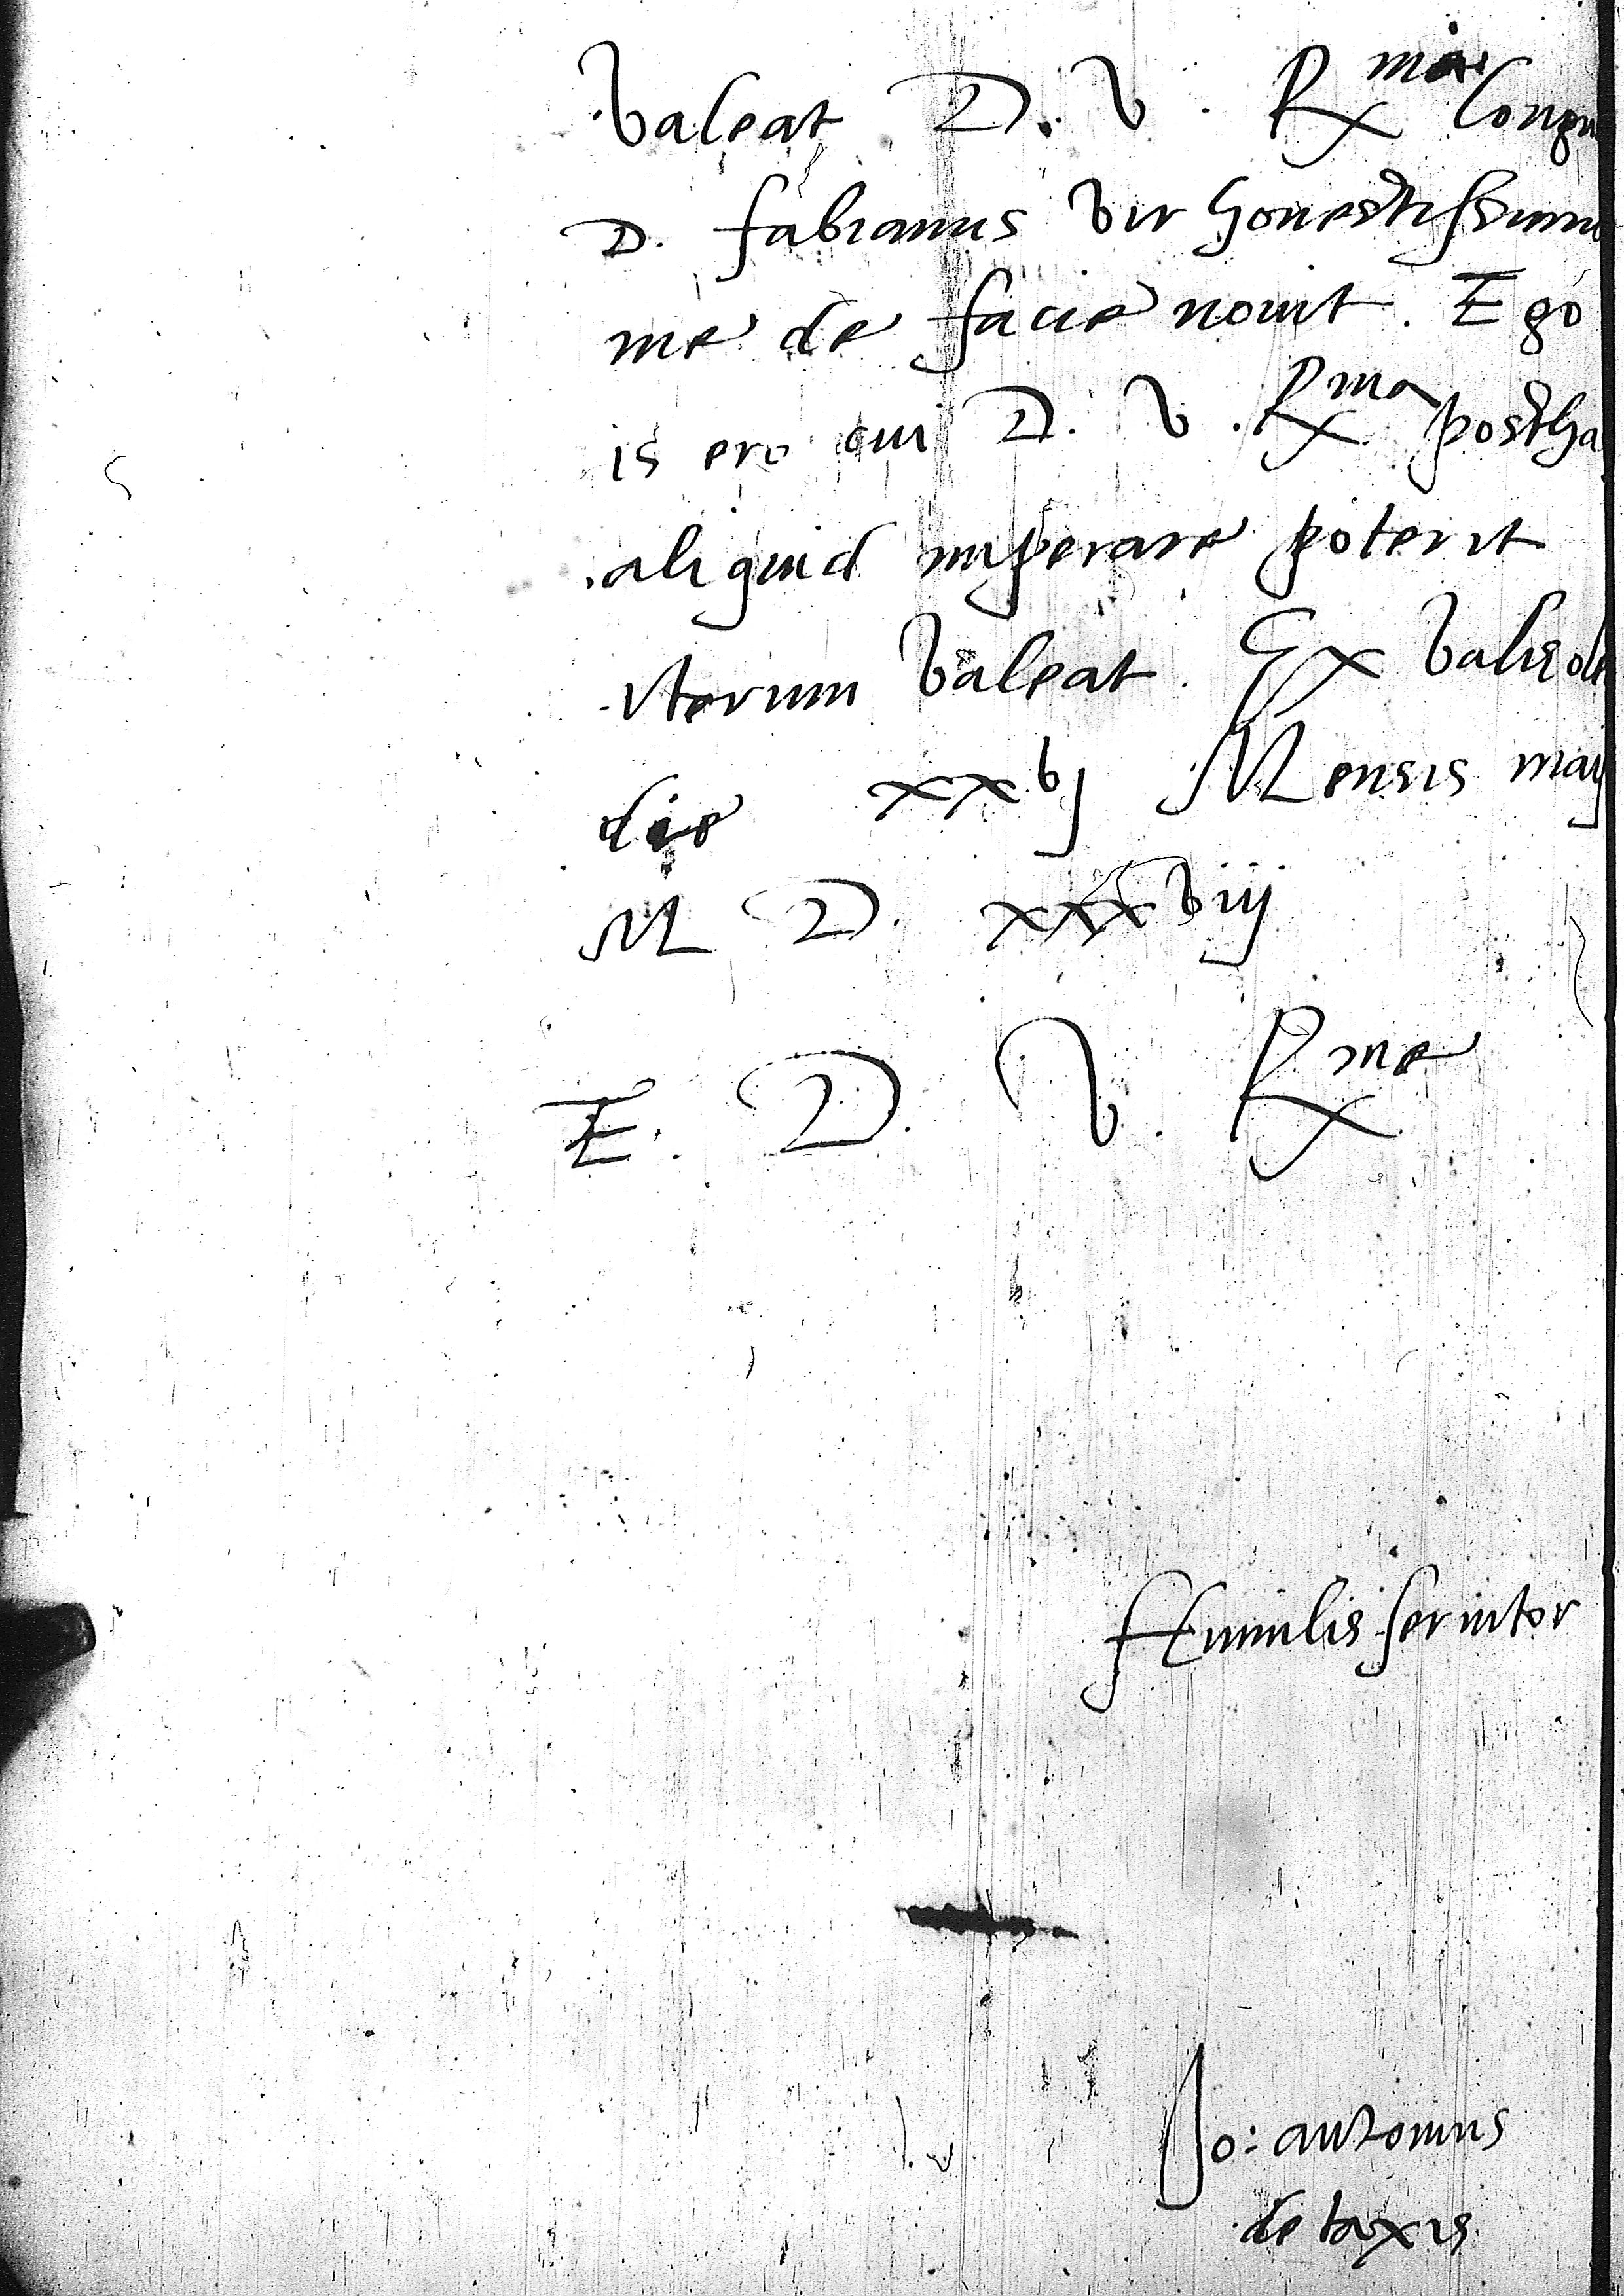 Valeat D. V. Rma Longu
D. fabianus vir honestissimu
me de facie nouit. Ego
is ero cui D. V. Rma postha
aliquid imperare poterit
iterum Valeat. Ex Valisole
die xxvj Mensis maij
M D. xxxviij
E. D. V. Rme
Humilis seruitor
Jo: antonius
de taxis